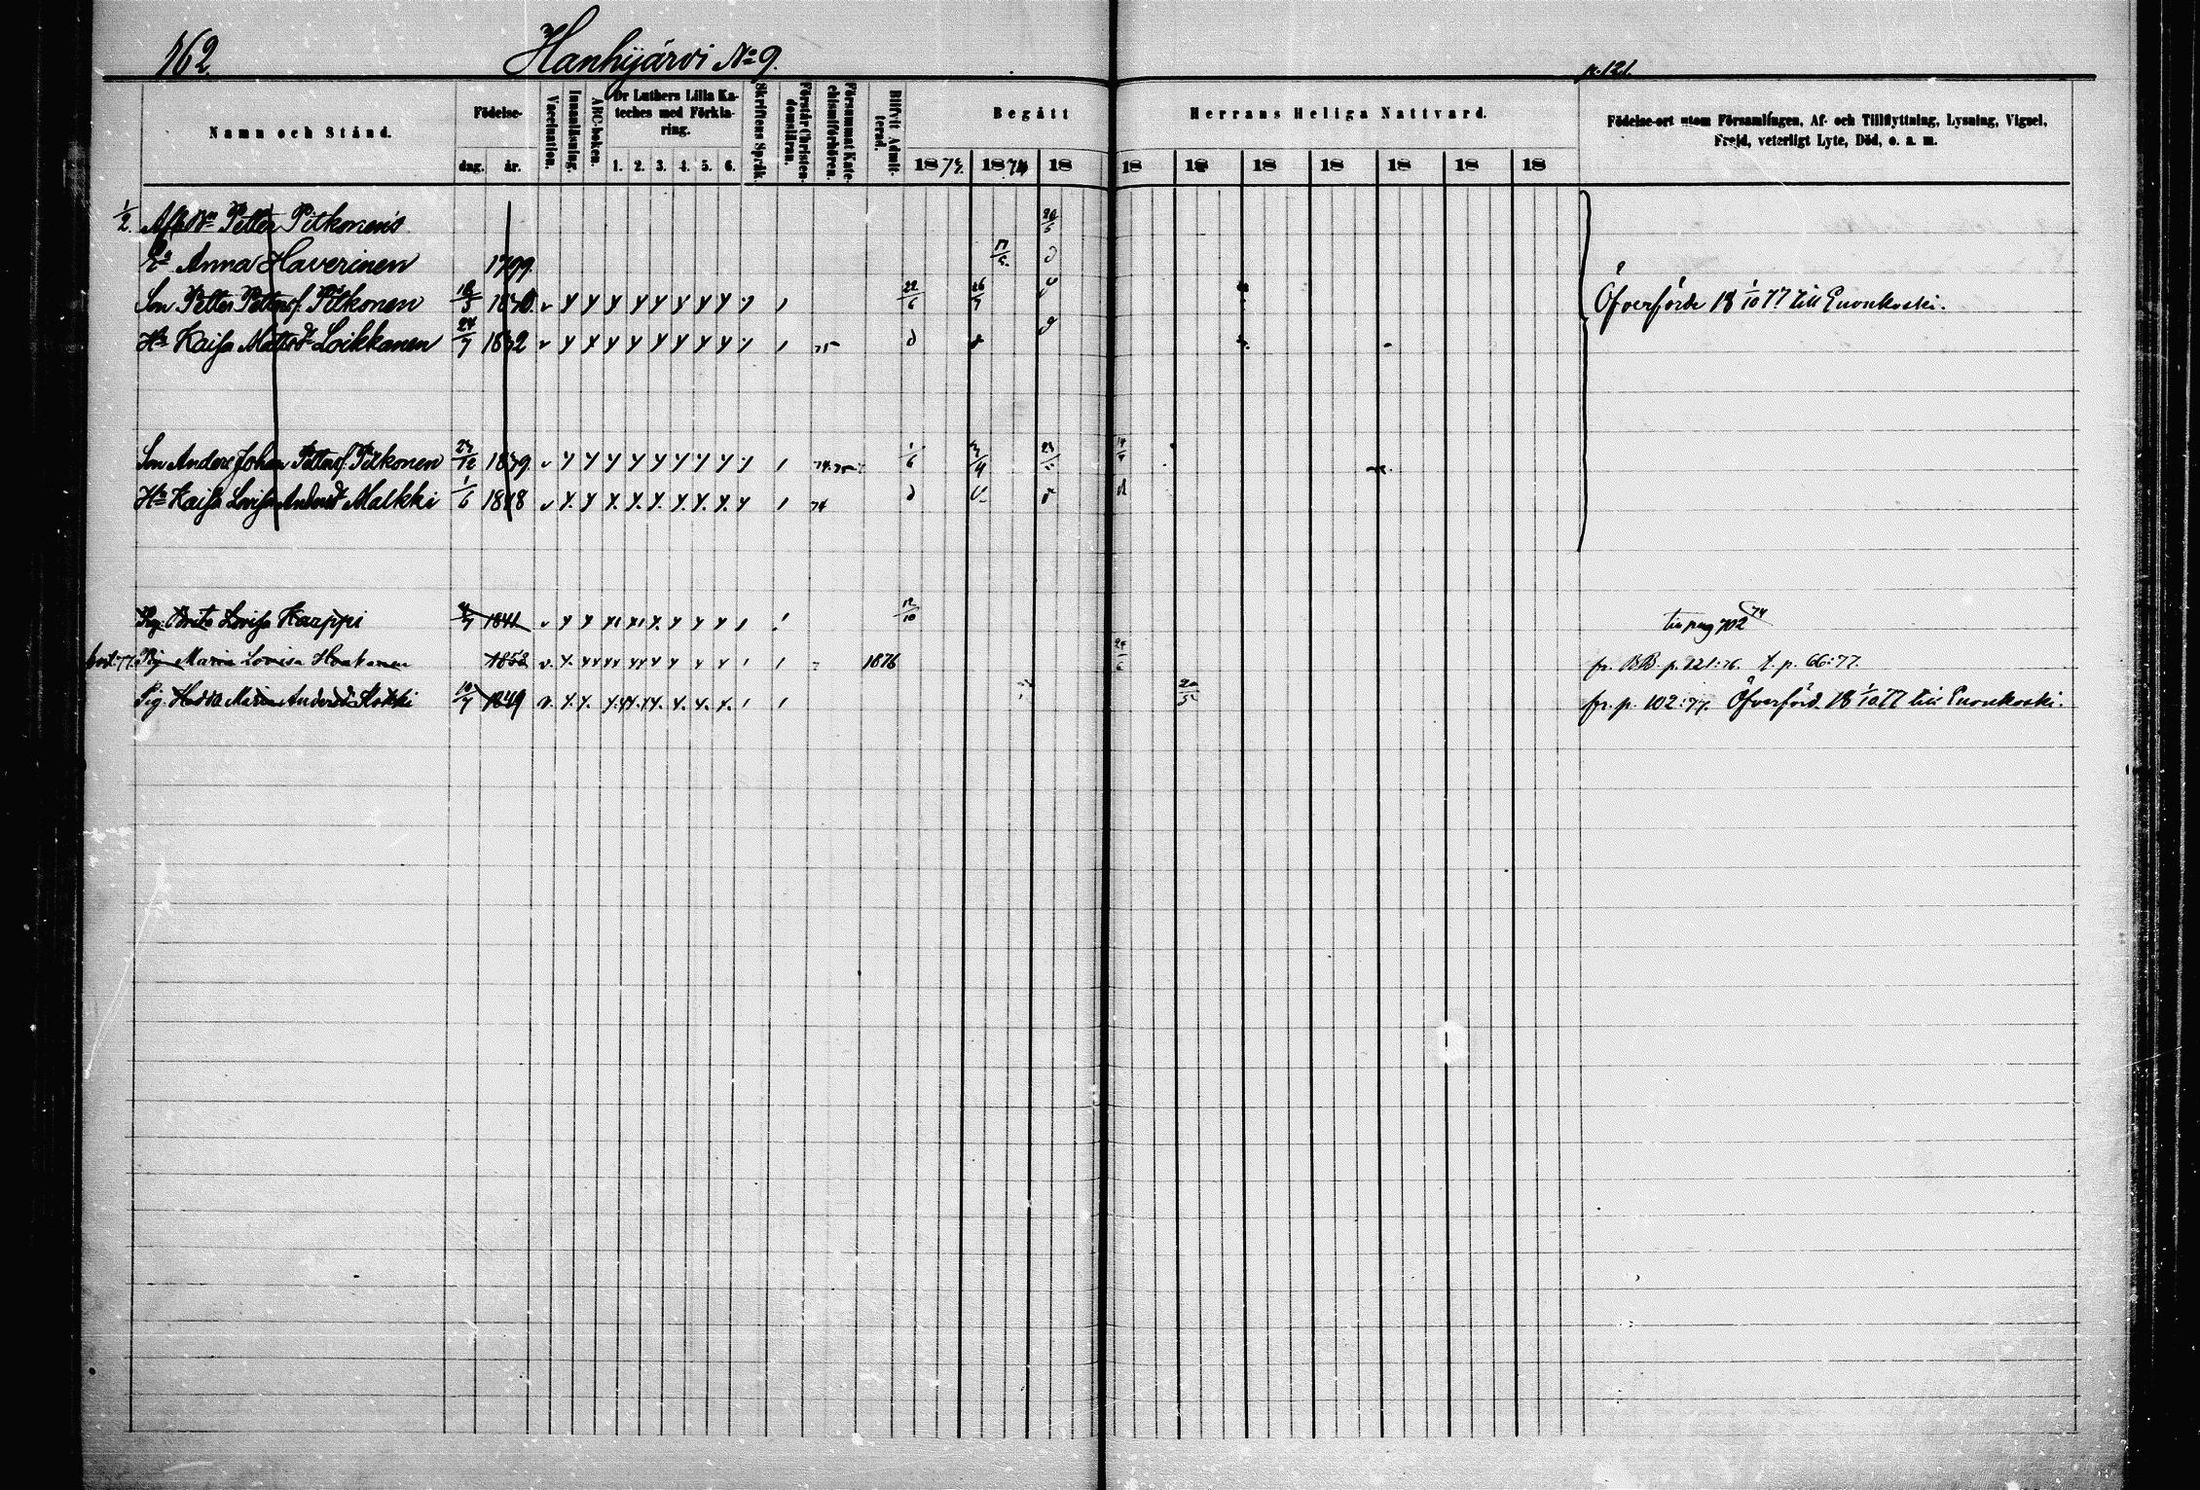 162. Hanhijärvi No 9. p. 121.
Namn och Stånd. Födelse- dag. år. Vaccination. Innanläsning. ABC-boken. Dr Luthers Lilla Kateches med Förklaring. 1. 2. 3. 4. 5. 6. Skriftens Språk. Förstår Christendomsläran. Försummat Katechismiförhören. Blifvit Admitterad. Begått Herrans Heliga Nattvard. 1873. 1874 18 18 18 18 18 18 18 18 Födelse-ort utom Församlingen, Af- och Tillflyttning, Lysning, Vigsel, Frejd, veterligt Lyte, Död, o. a. m.
1/2. Afl. Petter Pitkonens 20/5
Anna Haverinen 1799. 17/5 d
Son Petter Pettersf. Pitkonen 18/5 1830. v y y y y y y y y 22/6 26/4 d Öfverförde 18 1/10 77 till Enonkoski.
Hu Kaisa Mattsdr Loikkanen 24/7 1832 v y y y y y y y y 75 d d d
Son Anders Johan Pettersf. Pitkonen 27/12 1839. v y y y y y y y y 74.75 1/6 23/5
Hu Kaisa Lovisa Andersdr Malkki 1/6 1848 v y y y y y y y y 74 d d d
Pig. Brita Lovisa Karppi 1841 v y y y y y y y y 12/10 till pag 702 74
Pig Maria Lovisa 1853 v. y. y y y y y y y y 1876 24/6 fr. BB. p. 221:76. t. p. 66:77.
Pig. Hedda Maria Andersdr 10/7 1849 v. y. y. y. y. y. y. y. y. 20/5 fr. p. 102:77. Öfverförd. 18 1/10 77 till Enonkoski.